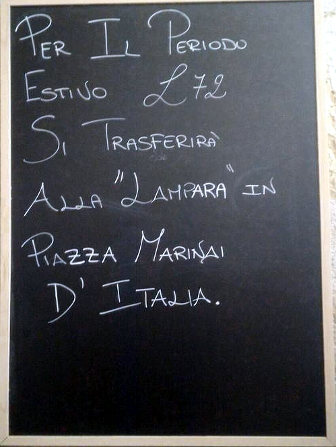 Per Il Periodo
Estivo L72
Si Trasferirà
Alla "Lampara" in
Piazza Marinai
D'Italia.